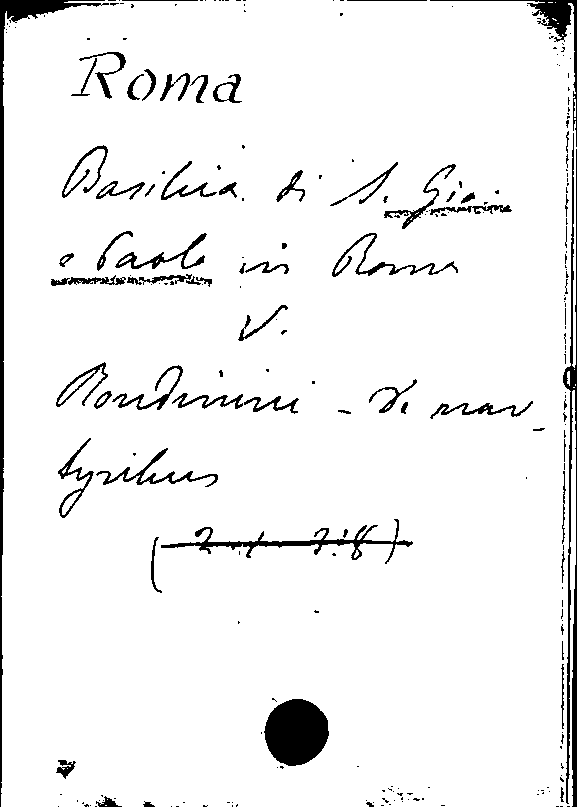 Roma
Basilica di S. Gio.
e Paolo in Roma
V.
Rondinini - De mar-
tyribus